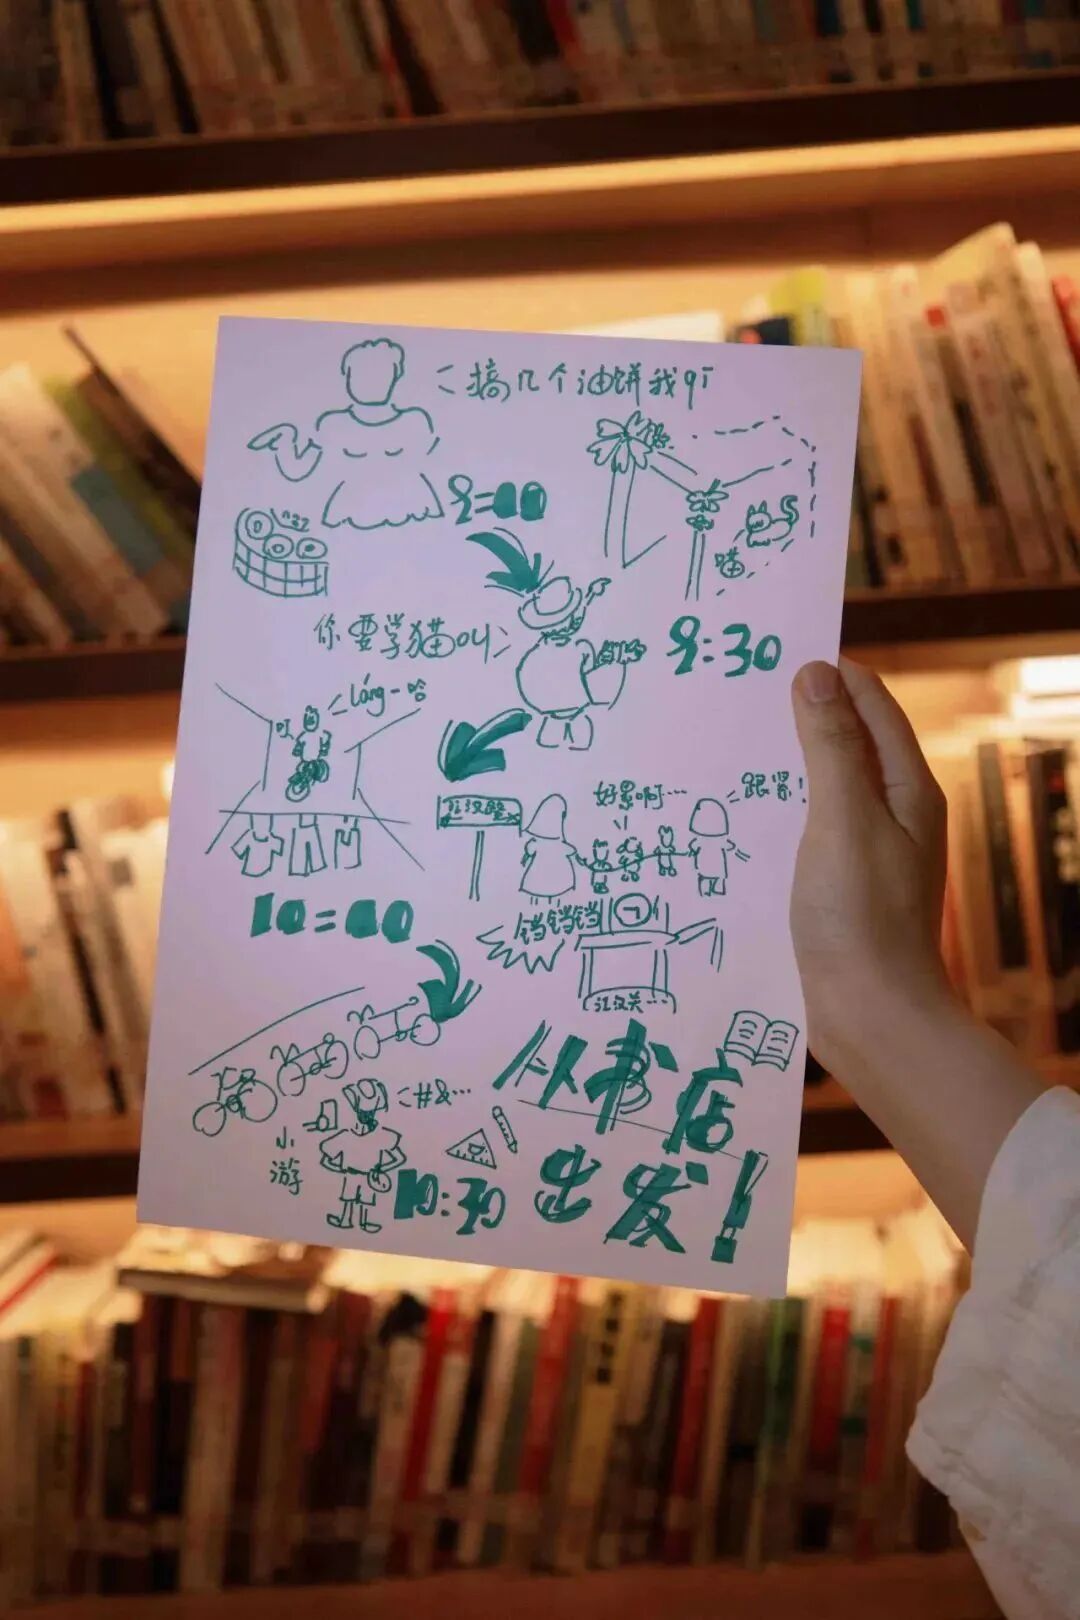 搞几个油饼我qī
9:00
喵
你要学猫叫
9:30
láng-哈
叮
好累啊…
跟紧!
10:00
铛铛铛
江汉关…
#&…
小游
10:30
从书店
出发!